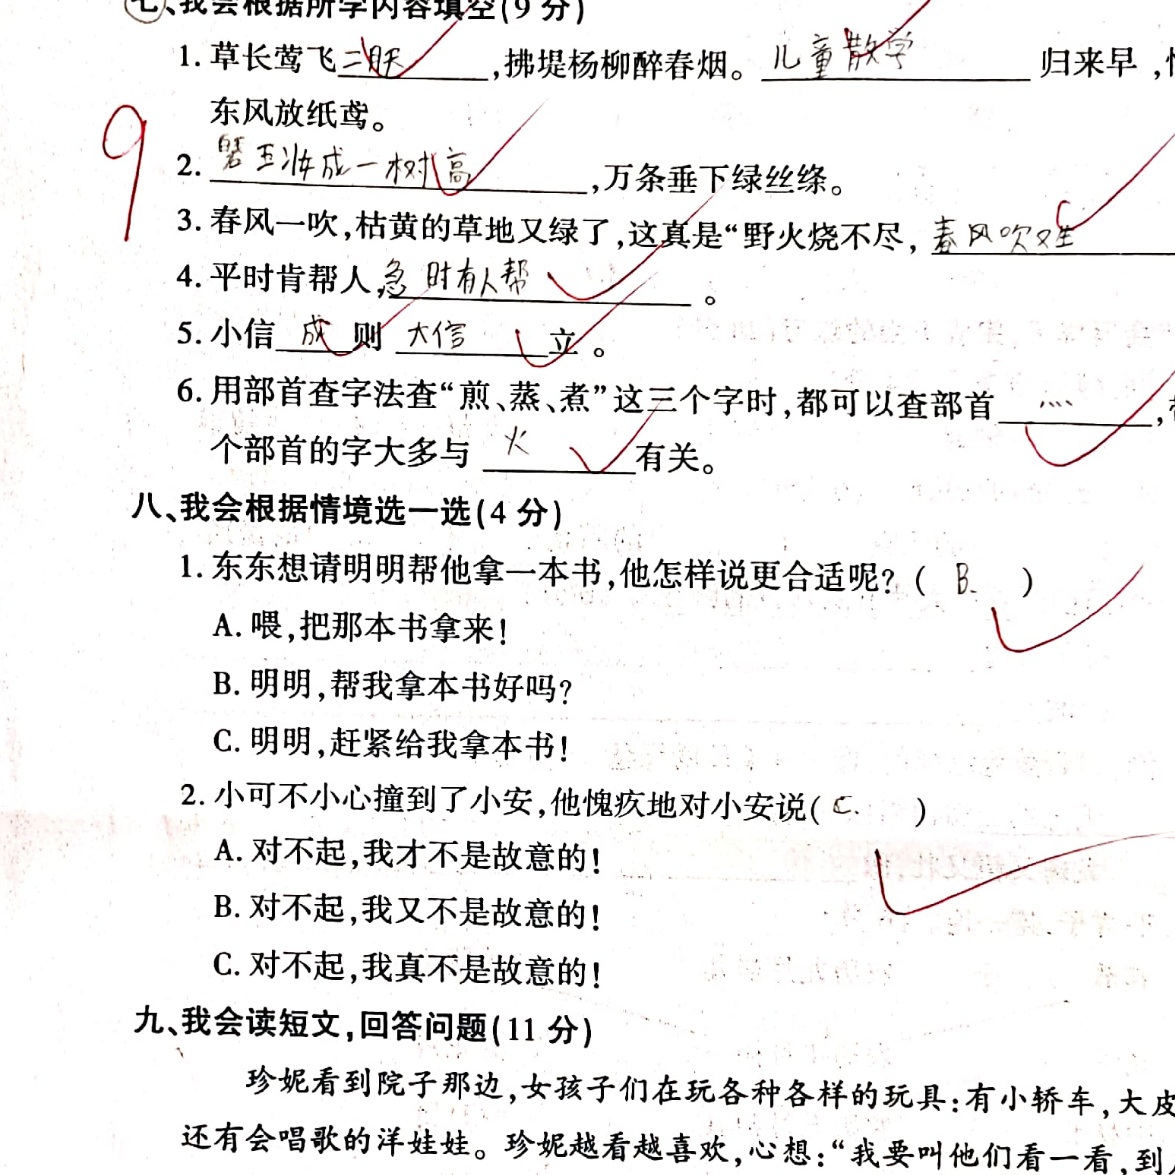 七、我会根据所学内容填空(9分)
1. 草长莺飞二月天,拂堤杨柳醉春烟。儿童散学归来早,忙
东风放纸鸢。
9
2. 碧玉妆成一树高,万条垂下绿丝绦。
3. 春风一吹,枯黄的草地又绿了,这真是“野火烧不尽,春风吹又生
4. 平时肯帮人,急时有人帮。
5. 小信成则大信立。
6. 用部首查字法查“煎、蒸、煮”这三个字时,都可以查部首灬,
个部首的字大多与火有关。
八、我会根据情境选一选(4分)
1. 东东想请明明帮他拿一本书,他怎样说更合适呢?( B. )
A. 喂,把那本书拿来!
B. 明明,帮我拿本书好吗?
C. 明明,赶紧给我拿本书!
2. 小可不小心撞到了小安,他愧疚地对小安说( C. )
A. 对不起,我才不是故意的!
B. 对不起,我又不是故意的!
C. 对不起,我真不是故意的!
九、我会读短文,回答问题(11分)
珍妮看到院子那边,女孩子们在玩各种各样的玩具:有小轿车,大皮
还有会唱歌的洋娃娃。珍妮越看越喜欢,心想:“我要叫他们看一看,到